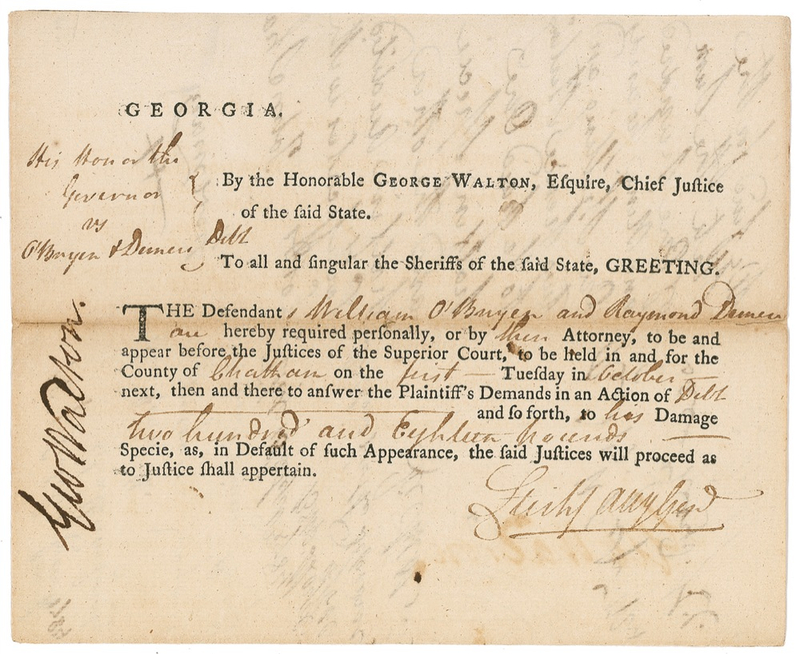 GEORGIA.
His Honor the
Governor
vs
O'Bryen & Demere Debt
By the Honorable GEORGE WALTON, Esquire, Chief Justice
of the said State.
To all and singular the Sheriffs of the said State, GREETING.
THE Defendants William O'Bryen and Raymond Demere
are hereby required personally, or by their Attorney, to be and
appear before the Justices of the Superior Court, to be held in and for the
County of Chatham on the first Tuesday in October
next, then and there to answer the Plaintiff's Demands in an Action of Debt
and so forth, to his Damage
two hundred and Eighteen pounds
Specie, as, in Default of such Appearance, the said Justices will proceed as
to Justice shall appertain.
Geo Walton.